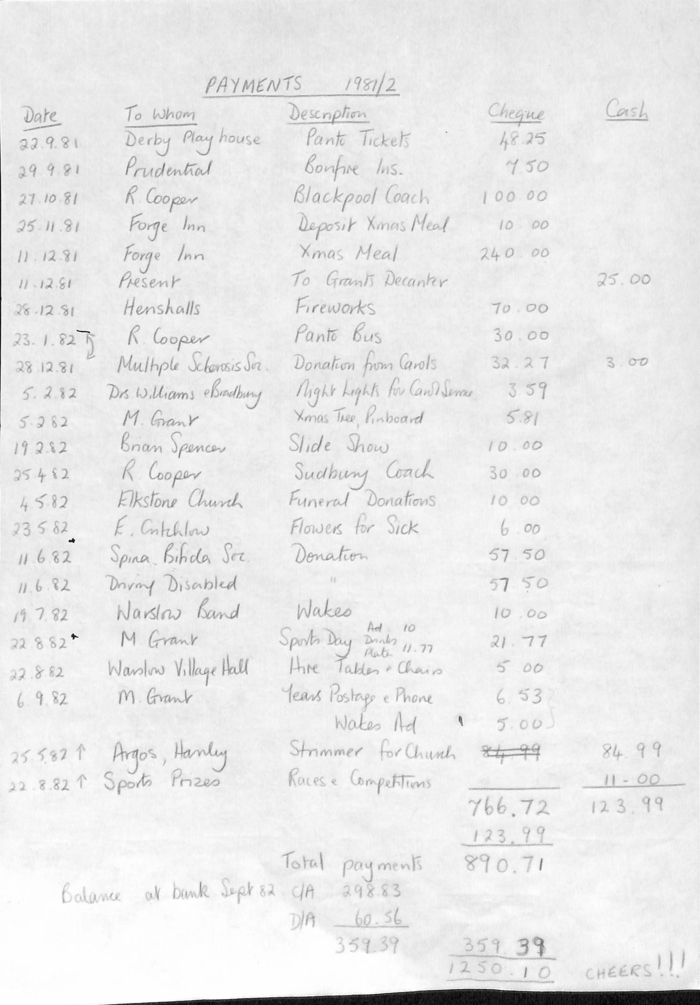 PAYMENTS 1981/2
Date To Whom Description Cheque Cash
22.9.81 Derby Playhouse Panto Tickets 48.25
29 9.81 Prudential Bonfire Ins. 7.50
27.10.81 R. Cooper Blackpool Coach 100 00
25.11.81 Forge Inn Deposit Xmas Meal 10.00
11.12.81 Forge Inn Xmas Meal 240.00
11.12.81 Present To Grants Decanter 25.00
28.12.81 Henshalls Fireworks 70.00
23.1.82 R. Cooper Panto Bus 30.00
28.12.81 Multiple Sclerosis Soc. Donation from Carols 32.27 3.00
5.2.82 Drs Williams & Bradbury Night Lights for Carol Service 3.59
5.2.82 M. Grant Xmas Tree, Pinboard 5.81
19 2.82 Brian Spencer Slide Show 10.00
25.4.82 R. Cooper Sudbury Coach 30 00
4.5.82 Elkstone Church Funeral Donations 10 00
23 5 82 E. Critchlow Flowers for Sick 6.00
11.6.82 Spina Bifida Soc. Donation 57.50
11.6.82 Driving Disabled " 57 50
19.7.82 Warslow Band Wakes 10.00
22 8 82 M Grant Sports Day Ad 10 Drinks Plate 11.77 21.77
22.8.82 Warslow Village Hall Hire Tables & Chairs 5 00
6 9.82 M. Grant Years Postage & Phone 6.53
Wakes Ad 5.00
25 5.82 ↑ Argos, Hanley Strimmer for Church 84.99 84.99
22.8.82 ↑ Sports Prizes Races & Competitions 11-00
766.72 123.99
123.99
Total payments 890.71
Balance at bank Sept 82 C/A 298.83
D/A 60.56
359.39 359.39
1250.10 CHEERS!!!